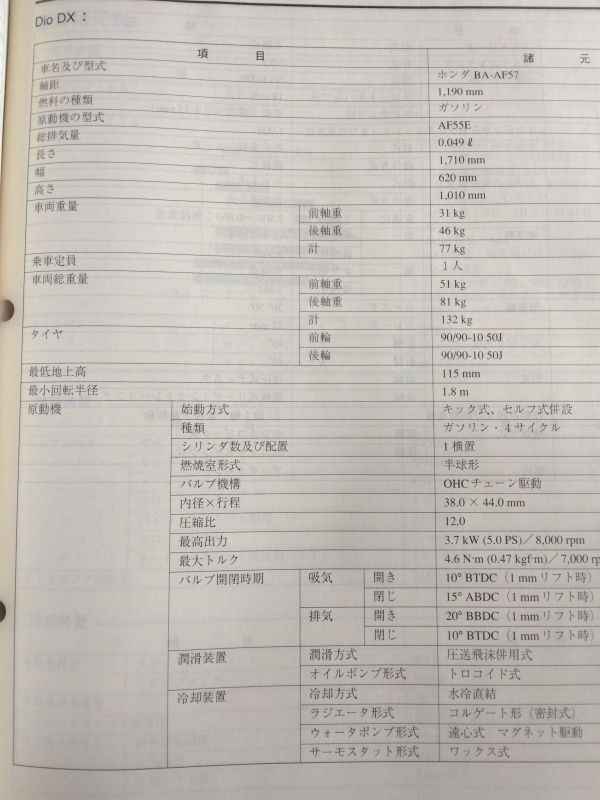 Dio DX：
項　目　諸　元
車名及び型式　ホンダ BA-AF57
軸距　1,190 mm
燃料の種類　ガソリン
原動機の型式　AF55E
総排気量　0.049 ℓ
長さ　1,710 mm
幅　620 mm
高さ　1,010 mm
車両重量　前軸重　31 kg
後軸重　46 kg
計　77 kg
乗車定員　1 人
車両総重量　前軸重　51 kg
後軸重　81 kg
計　132 kg
タイヤ　前輪　90/90-10 50J
後輪　90/90-10 50J
最低地上高　115 mm
最小回転半径　1.8 m
原動機　始動方式　キック式、セルフ式併設
種類　ガソリン・４サイクル
シリンダ数及び配置　1 横置
燃焼室形式　半球形
バルブ機構　OHC チェーン駆動
内径×行程　38.0 × 44.0 mm
圧縮比　12.0
最高出力　3.7 kW (5.0 PS)／8,000 rpm
最大トルク　4.6 N·m (0.47 kgf·m)／7,000 rp
バルブ開閉時期　吸気　開き　10° BTDC（1 mm リフト時）
閉じ　15° ABDC（1 mm リフト時）
排気　開き　20° BBDC（1 mm リフト時）
閉じ　10° BTDC（1 mm リフト時）
潤滑装置　潤滑方式　圧送飛沫併用式
オイルポンプ形式　トロコイド式
冷却装置　冷却方式　水冷直結
ラジエータ形式　コルゲート形（密封式）
ウォータポンプ形式　遠心式　マグネット駆動
サーモスタット形式　ワックス式